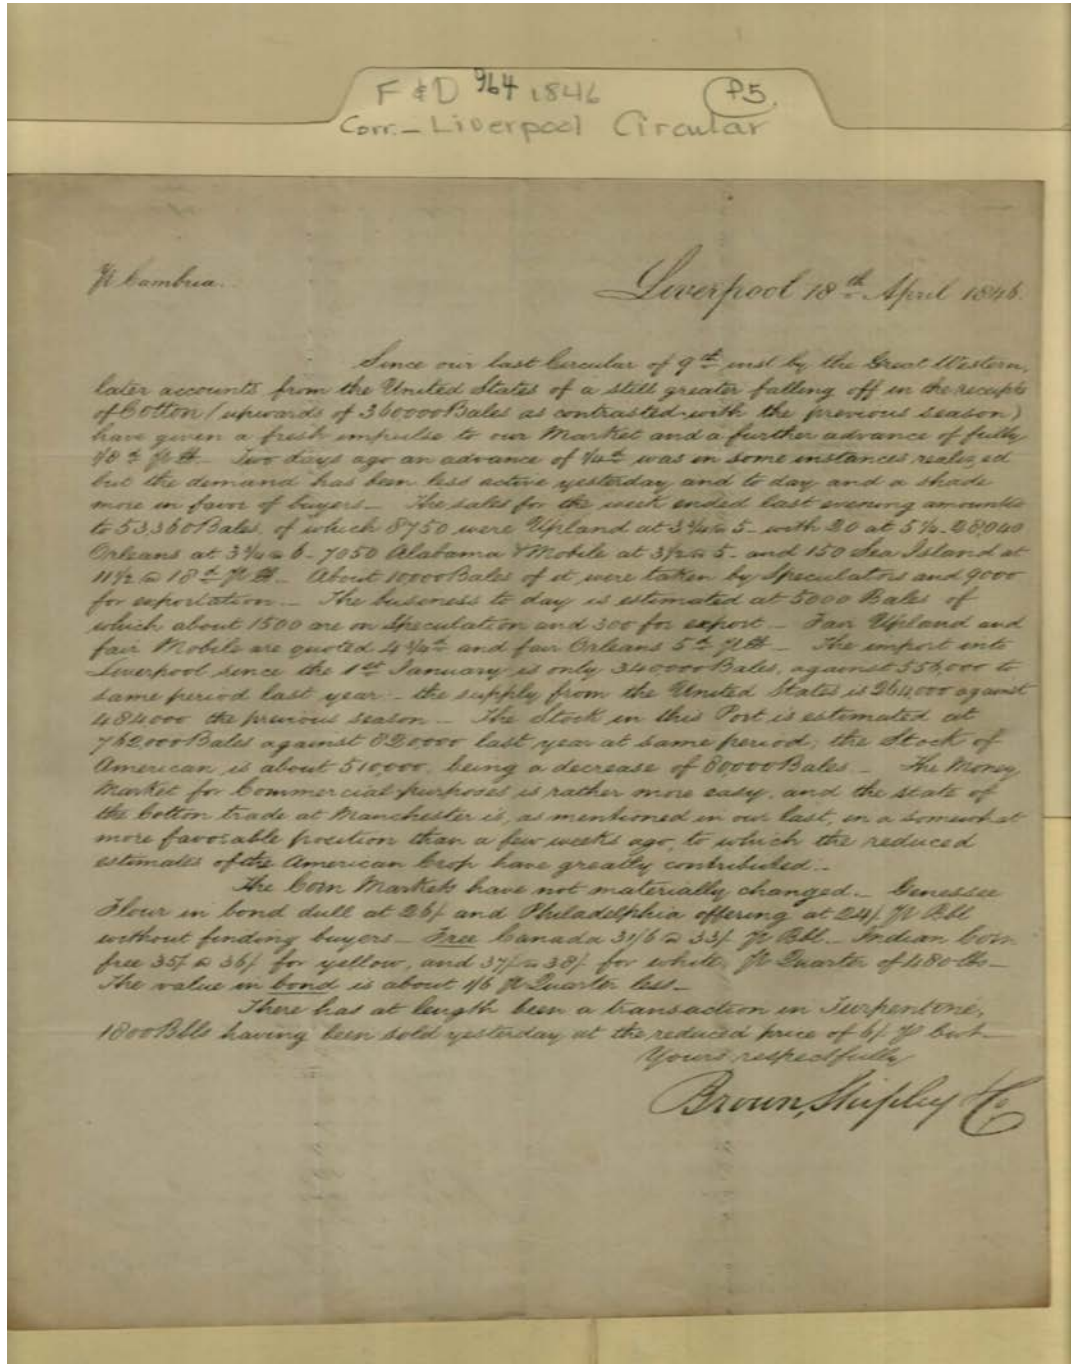 F & D 964 1846 P5.
Corr. - Liverpool Circular
℔ Cambria.
Liverpool 18th April 1846.
Since our last Circular of 9th inst by the Great Western,
later accounts from the United States of a still greater falling off in the receipts
of Cotton (upwards of 360000 Bales as contrasted with the previous season)
have given a fresh impulse to our Market and a further advance of fully
1/8d ℔ lb. Two days ago an advance of 1/4d was in some instances realized
but the demand has been less active yesterday and to day and a shade
more in favor of buyers. The sales for the week ended last evening amounted
to 53,360 Bales, of which 8750 were Upland at 3 3/4 @ 5 - with 20 at 5 1/4 - 28,040
Orleans at 3 3/4 @ 6 - 7050 Alabama & Mobile at 3 1/2 @ 5 - and 150 Sea Island at
11 1/2 @ 18d ℔ lb - About 10000 Bales of it were taken by Speculators and 9000
for exportation - The business to day is estimated at 5000 Bales of
which about 1500 are on Speculation and 300 for export - Fair Upland and
fair Mobile are quoted 4 3/4d and fair Orleans 5d ℔ lb - The import into
Liverpool since the 1st January is only 340000 Bales, against 556,000 to
same period last year - the supply from the United States is 264000 against
484000 the previous season - The Stock in this Port is estimated at
762,000 Bales against 820,000 last year at same period, the Stock of
American is about 510,000, being a decrease of 80,000 Bales - The Money
Market for Commercial purposes is rather more easy, and the state of
the Cotton trade at Manchester is, as mentioned in our last, in a somewhat
more favorable position than a few weeks ago, to which the reduced
estimates of the American Crop have greatly contributed -
The Corn Markets have not materially changed - Genessee
Flour in bond dull at 26/ and Philadelphia offering at 24/ ℔ Bbl
without finding buyers - Free Canada 31/6 @ 33/ ℔ Bbl - Indian Corn
free 35/ @ 36/ for yellow, and 37/ @ 38/ for white, ℔ Quarter of 480 lbs -
The value in bond is about 1/6 ℔ Quarter less -
There has at length been a transaction in Turpentine,
1800 Bbls having been sold yesterday at the reduced price of 6/ ℔ Cwt -
Yours respectfully
Brown, Shipley & Co.